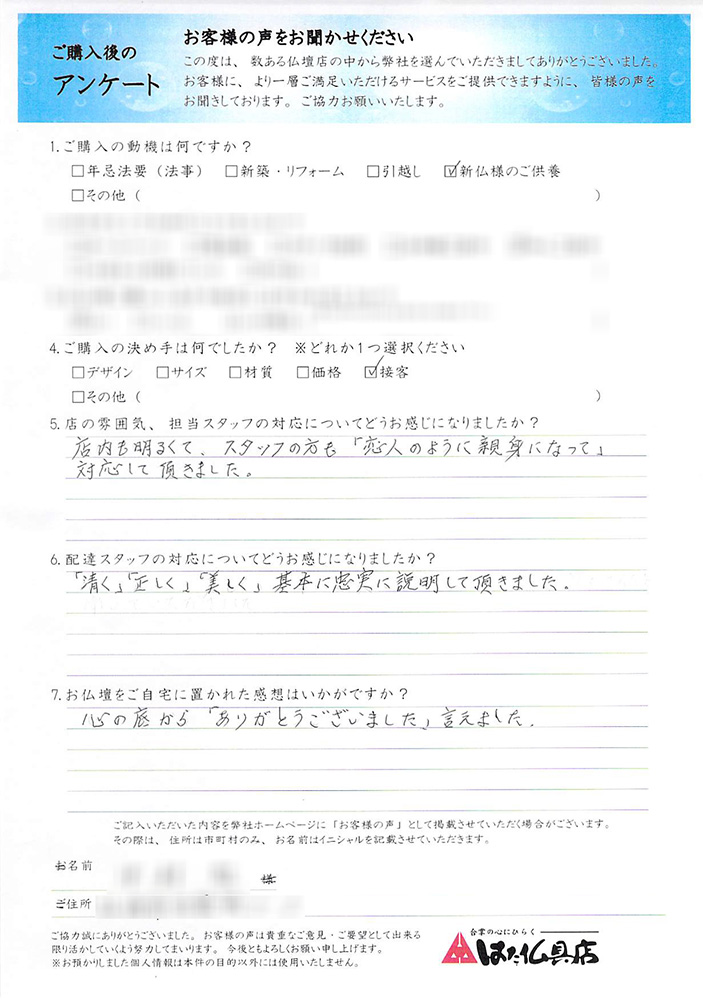 ご購入後の
アンケート
お客様の声をお聞かせください
この度は、数ある仏壇店の中から弊社を選んでいただきましてありがとうございました。
お客様に、より一層ご満足いただけるサービスをご提供できますように、皆様の声を
お聞きしております。ご協力お願いいたします。
1.ご購入の動機は何ですか？
□年忌法要（法事） □新築・リフォーム □引越し ☑新仏様のご供養
□その他（ ）
4.ご購入の決め手は何でしたか？ ※どれか1つ選択ください
□デザイン □サイズ □材質 □価格 ☑接客
□その他（ ）
5.店の雰囲気、担当スタッフの対応についてどうお感じになりましたか？
店内も明るくて、スタッフの方も「恋人のように親身になって」
対応して頂きました。
6.配達スタッフの対応についてどうお感じになりましたか？
「清く」「正しく」「美しく」基本に忠実に説明して頂きました。
7.お仏壇をご自宅に置かれた感想はいかがですか？
心の底から「ありがとうございました」言えました.
ご記入いただいた内容を弊社ホームページに「お客様の声」として掲載させていただく場合がございます。
その際は、住所は市町村のみ、お名前はイニシャルを記載させていただきます。
お名前 様
ご住所
ご協力誠にありがとうございました。お客様の声は貴重なご意見・ご要望として出来る
限り活かしていくよう努力してまいります。今後ともよろしくお願い申し上げます。
※お預かりしました個人情報は本件の目的以外には使用いたしません。
合掌の心にひらく
はた仏具店